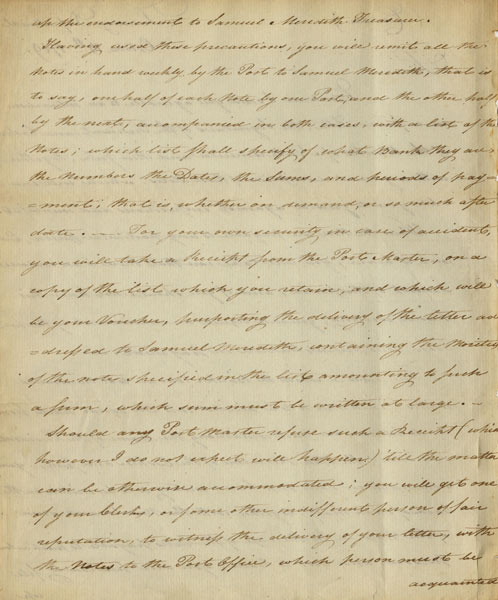 up the endorsement to Samuel Meredith Treasurer.
Having used these precautions, you will remit all the
Notes in hand weekly by the Post to Samuel Meredith, that is
to say, one half of each Note by one Post, and the other half
by the next, accompanied in both cases, with a list of the
Notes; which list shall specify of what Bank they are
the Numbers the Dates, the Sums, and periods of pay
=ment; that is, whether on demand, or so much after
date. — For your own security in case of accident,
you will take a Receipt from the Post Master, on a
copy of the list which you retain, and which will
be your Voucher, purporting the delivery of the letter ad
=dressed to Samuel Meredith, containing the Moieties
of the notes specified in the list amounting to such
a sum, which sum must be written at large. —
Should any Post Master refuse such a Receipt (which
however I do not expect will happen) till the matter
can be otherwise accommodated; you will get one
of your Clerks, or some other indifferent person of fair
reputation, to witness the delivery of your letter, with
the Notes to the Post Office, which person must be
acquainted